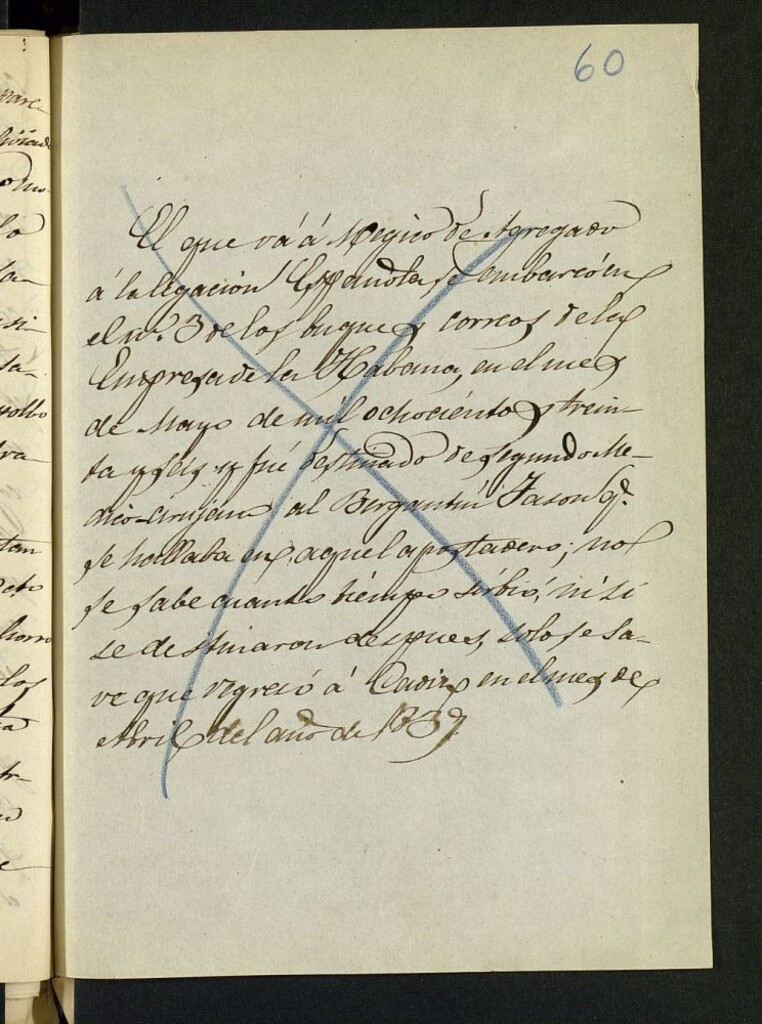 60
El que vá á Megico de Agregado
á la legación Española se embarcó en
el nº. 3 de los buques correos de la
Empresa de la Habana, en el mes
de Mayo de mil ochocientos trein-
ta y seis y fué destinado de segundo Me-
dico-cirujano al Bergantin Jason q.e
se hallaba en aquel apostadero; no
se sabe cuanto tiempo sirbió, ni si
se destinaron despues, solo se sa-
ve que regresó á Cadiz en el mes de
Abril del año de 1839.